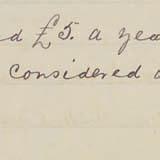 d £5. a yea
considered a